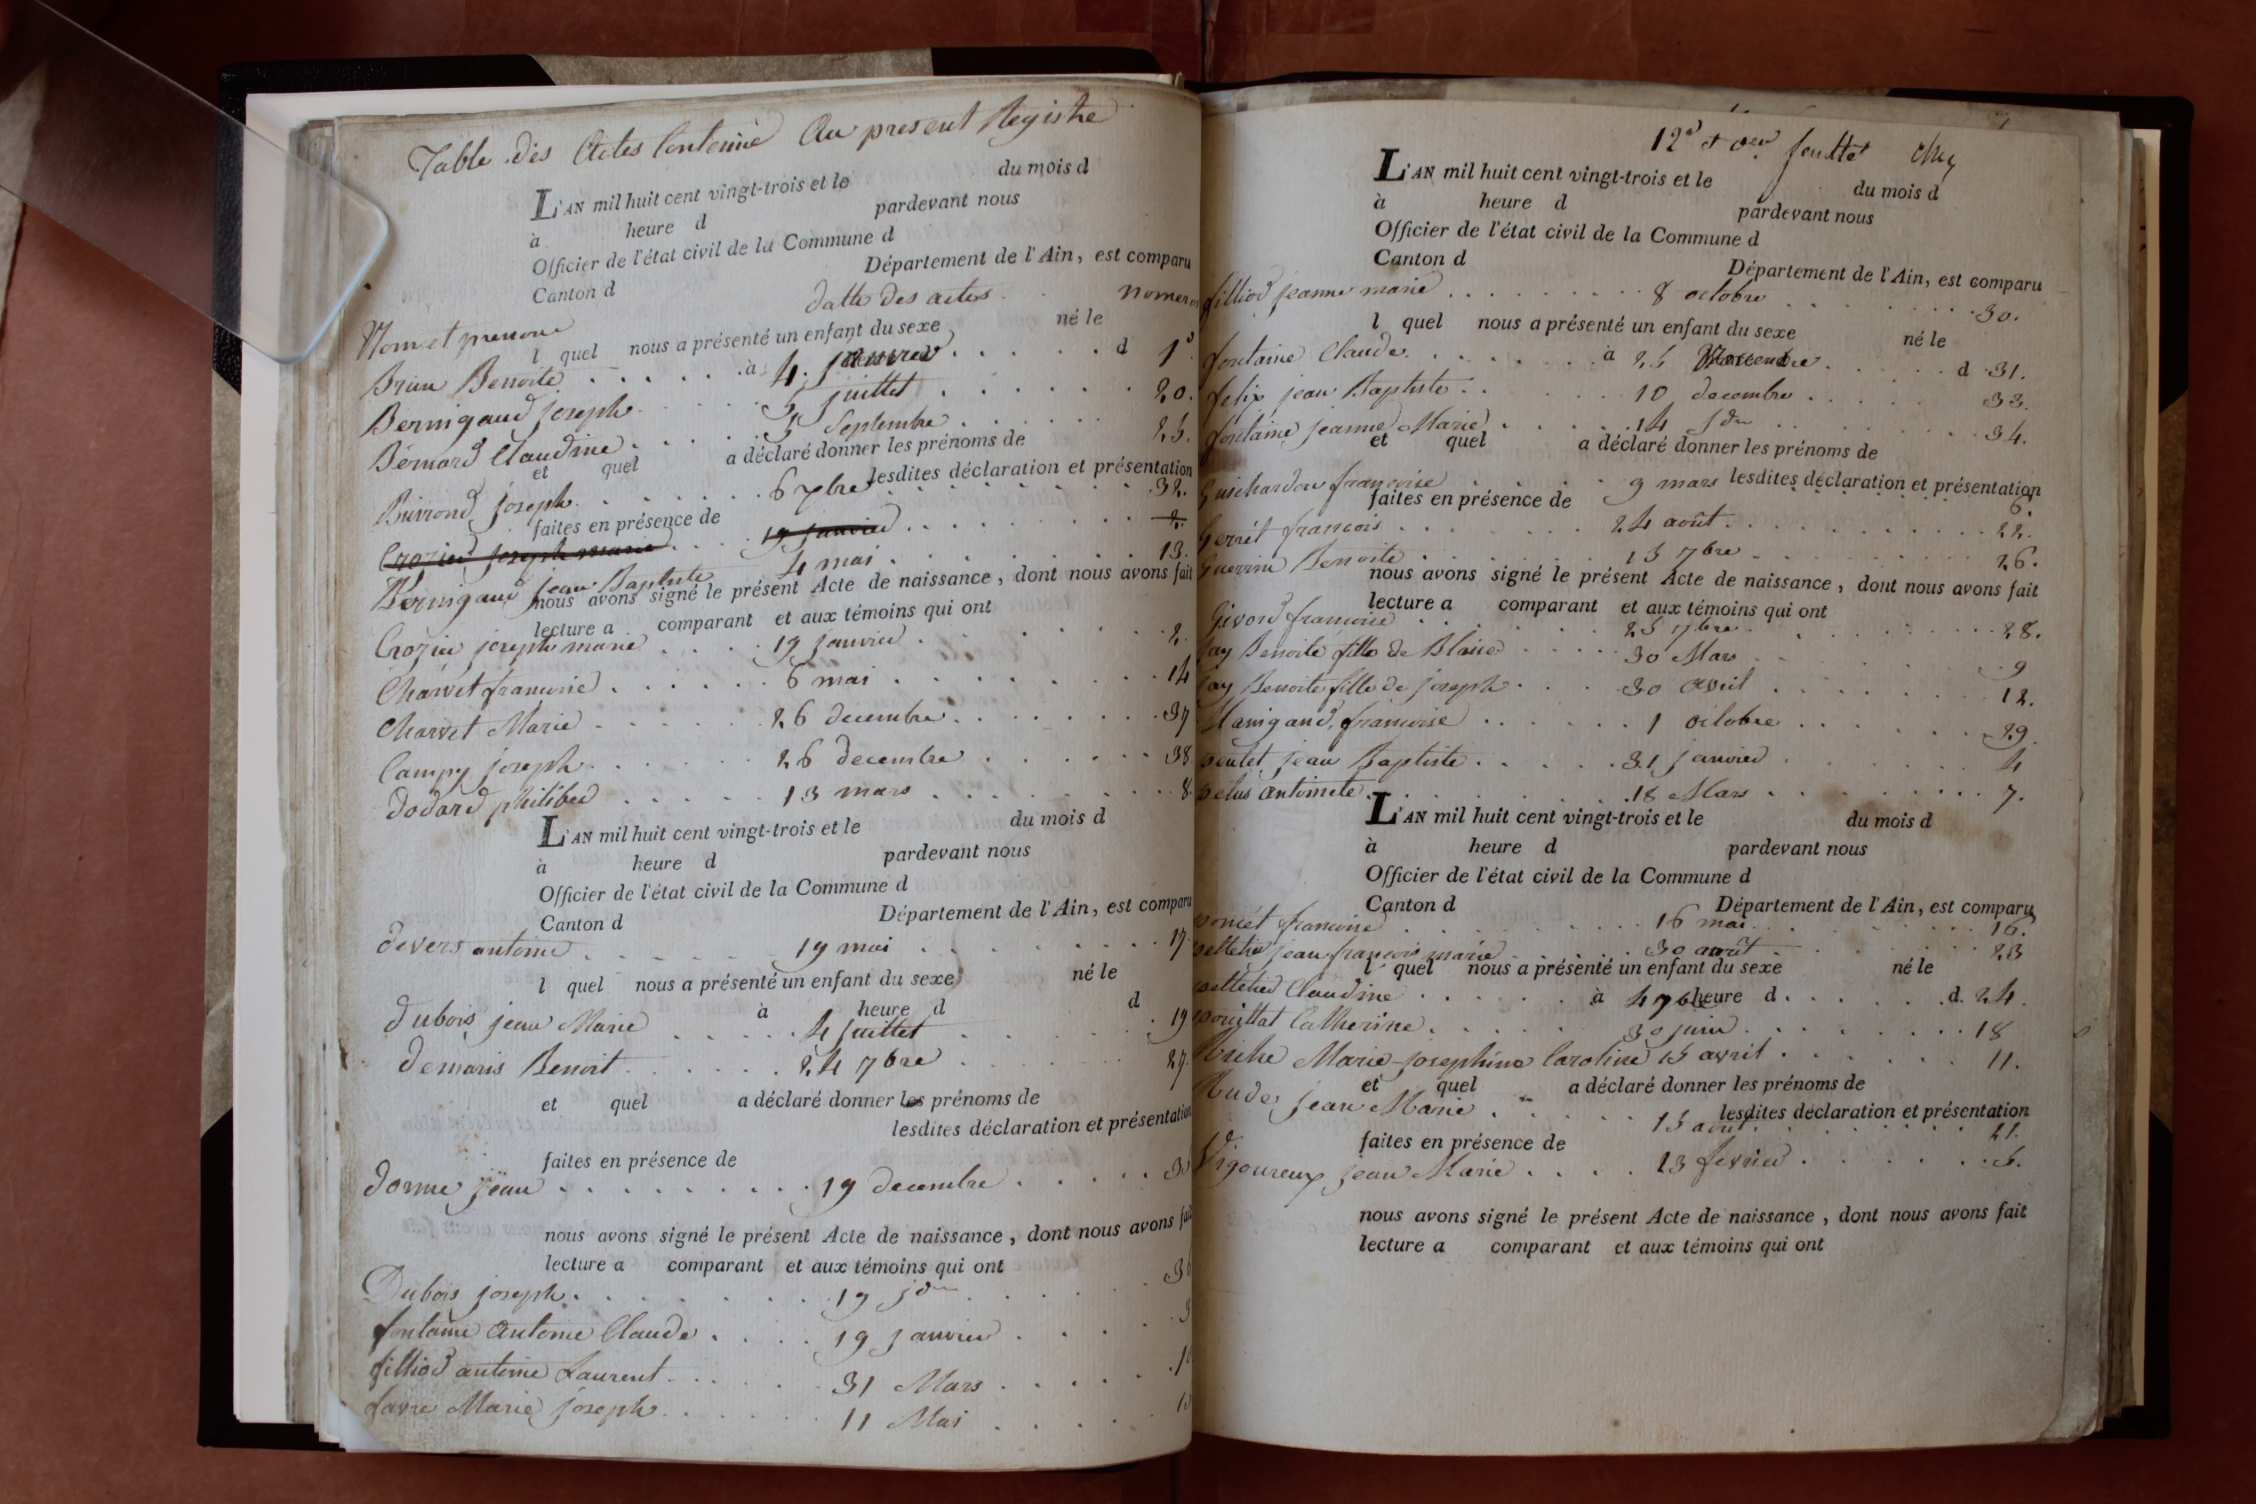 Table des Actes Contenue Au present Registre
L'AN mil huit cent vingt-trois et le du mois d
à heure d pardevant nous
Officier de l'état civil de la Commune d
Canton d Département de l'Ain, est comparu
Nom et prenom datte des actes nomeros
l quel nous a présenté un enfant du sexe né le
Brun Benoite à 4 janvier d 1
Bernigaud joseph 5 juillet 20.
Bernard Claudine 5 Septembre 25.
et quel a déclaré donner les prénoms de
lesdites déclaration et présentation
joseph 6 32.
faites en présence de
Crozier joseph marie 19 janvier 2.
Bernigaud jean Baptiste 4 mai 13.
nous avons signé le présent Acte de naissance, dont nous avons fait
lecture a comparant et aux témoins qui ont
Crozier joseph marie 19 janvier 2.
Charvet francoise 6 mai 14
Charvet Marie 26 decembre 37
Campy joseph 26 decembre 38
dodard philiber 13 mars 8.
L'AN mil huit cent vingt-trois et le du mois d
à heure d pardevant nous
Officier de l'état civil de la Commune d
Canton d Département de l'Ain, est comparu
devers antoine 19 mai 17.
l quel nous a présenté un enfant du sexe né le
à heure d d
dubois jean Marie 4 juillet 19
demaris Benoit 24 7bre 27.
et quel a déclaré donner les prénoms de
lesdites déclaration et présentation
faites en présence de
dorme jean 19 decembre
nous avons signé le présent Acte de naissance, dont nous avons fait
lecture a comparant et aux témoins qui ont
Dubois joseph 19 jdm
fontaine antoine Claude 19 janvier 3
filliod antoine Laurent 31 Mars
favre Marie joseph 11 Mai
12e et der feuillet
L'AN mil huit cent vingt-trois et le du mois d
à heure d pardevant nous
Officier de l'état civil de la Commune d
Canton d Département de l'Ain, est comparu
filliod jeanne marie 8 octobre 30.
l quel nous a présenté un enfant du sexe né le
fontaine Claude à 25 Novembre d 31.
felix jean Baptiste 10 decembre 33.
fontaine jeanne Marie 14 jdm 34.
et quel a déclaré donner les prénoms de
lesdites déclaration et présentation
Guichardon francoise 9 mars 6.
faites en présence de
Gerrét francois 24 août 22.
Guerrin Benoite 15 7bre 26.
nous avons signé le présent Acte de naissance, dont nous avons fait
lecture a comparant et aux témoins qui ont
Givord francoise 25 7bre 28.
jay Benoite fille de Blaise 30 Mars 9
jay Benoite fille de joseph 30 avril 12.
Manigand francoise 1 octobre 29.
poulet jean Baptiste 31 janvier 4
pelus antoinete 18 Mars 7.
L'AN mil huit cent vingt-trois et le du mois d
à heure d pardevant nous
Officier de l'état civil de la Commune d
Canton d Département de l'Ain, est comparu
poncét francoise 16 mai 16.
pelletier jean francois marie 30 août 23
l quel nous a présenté un enfant du sexe né le
pelletier Claudine à 4 7bre heure d d. 24.
Catherine 30 juin 18
Marie josephine Caroline 15 avril 11.
et quel a déclaré donner les prénoms de
Rude jean Marie 15 août 21.
lesdites déclaration et présentation
faites en présence de
Vigoureux jean Marie 13 fevrier 5.
nous avons signé le présent Acte de naissance, dont nous avons fait
lecture a comparant et aux témoins qui ont